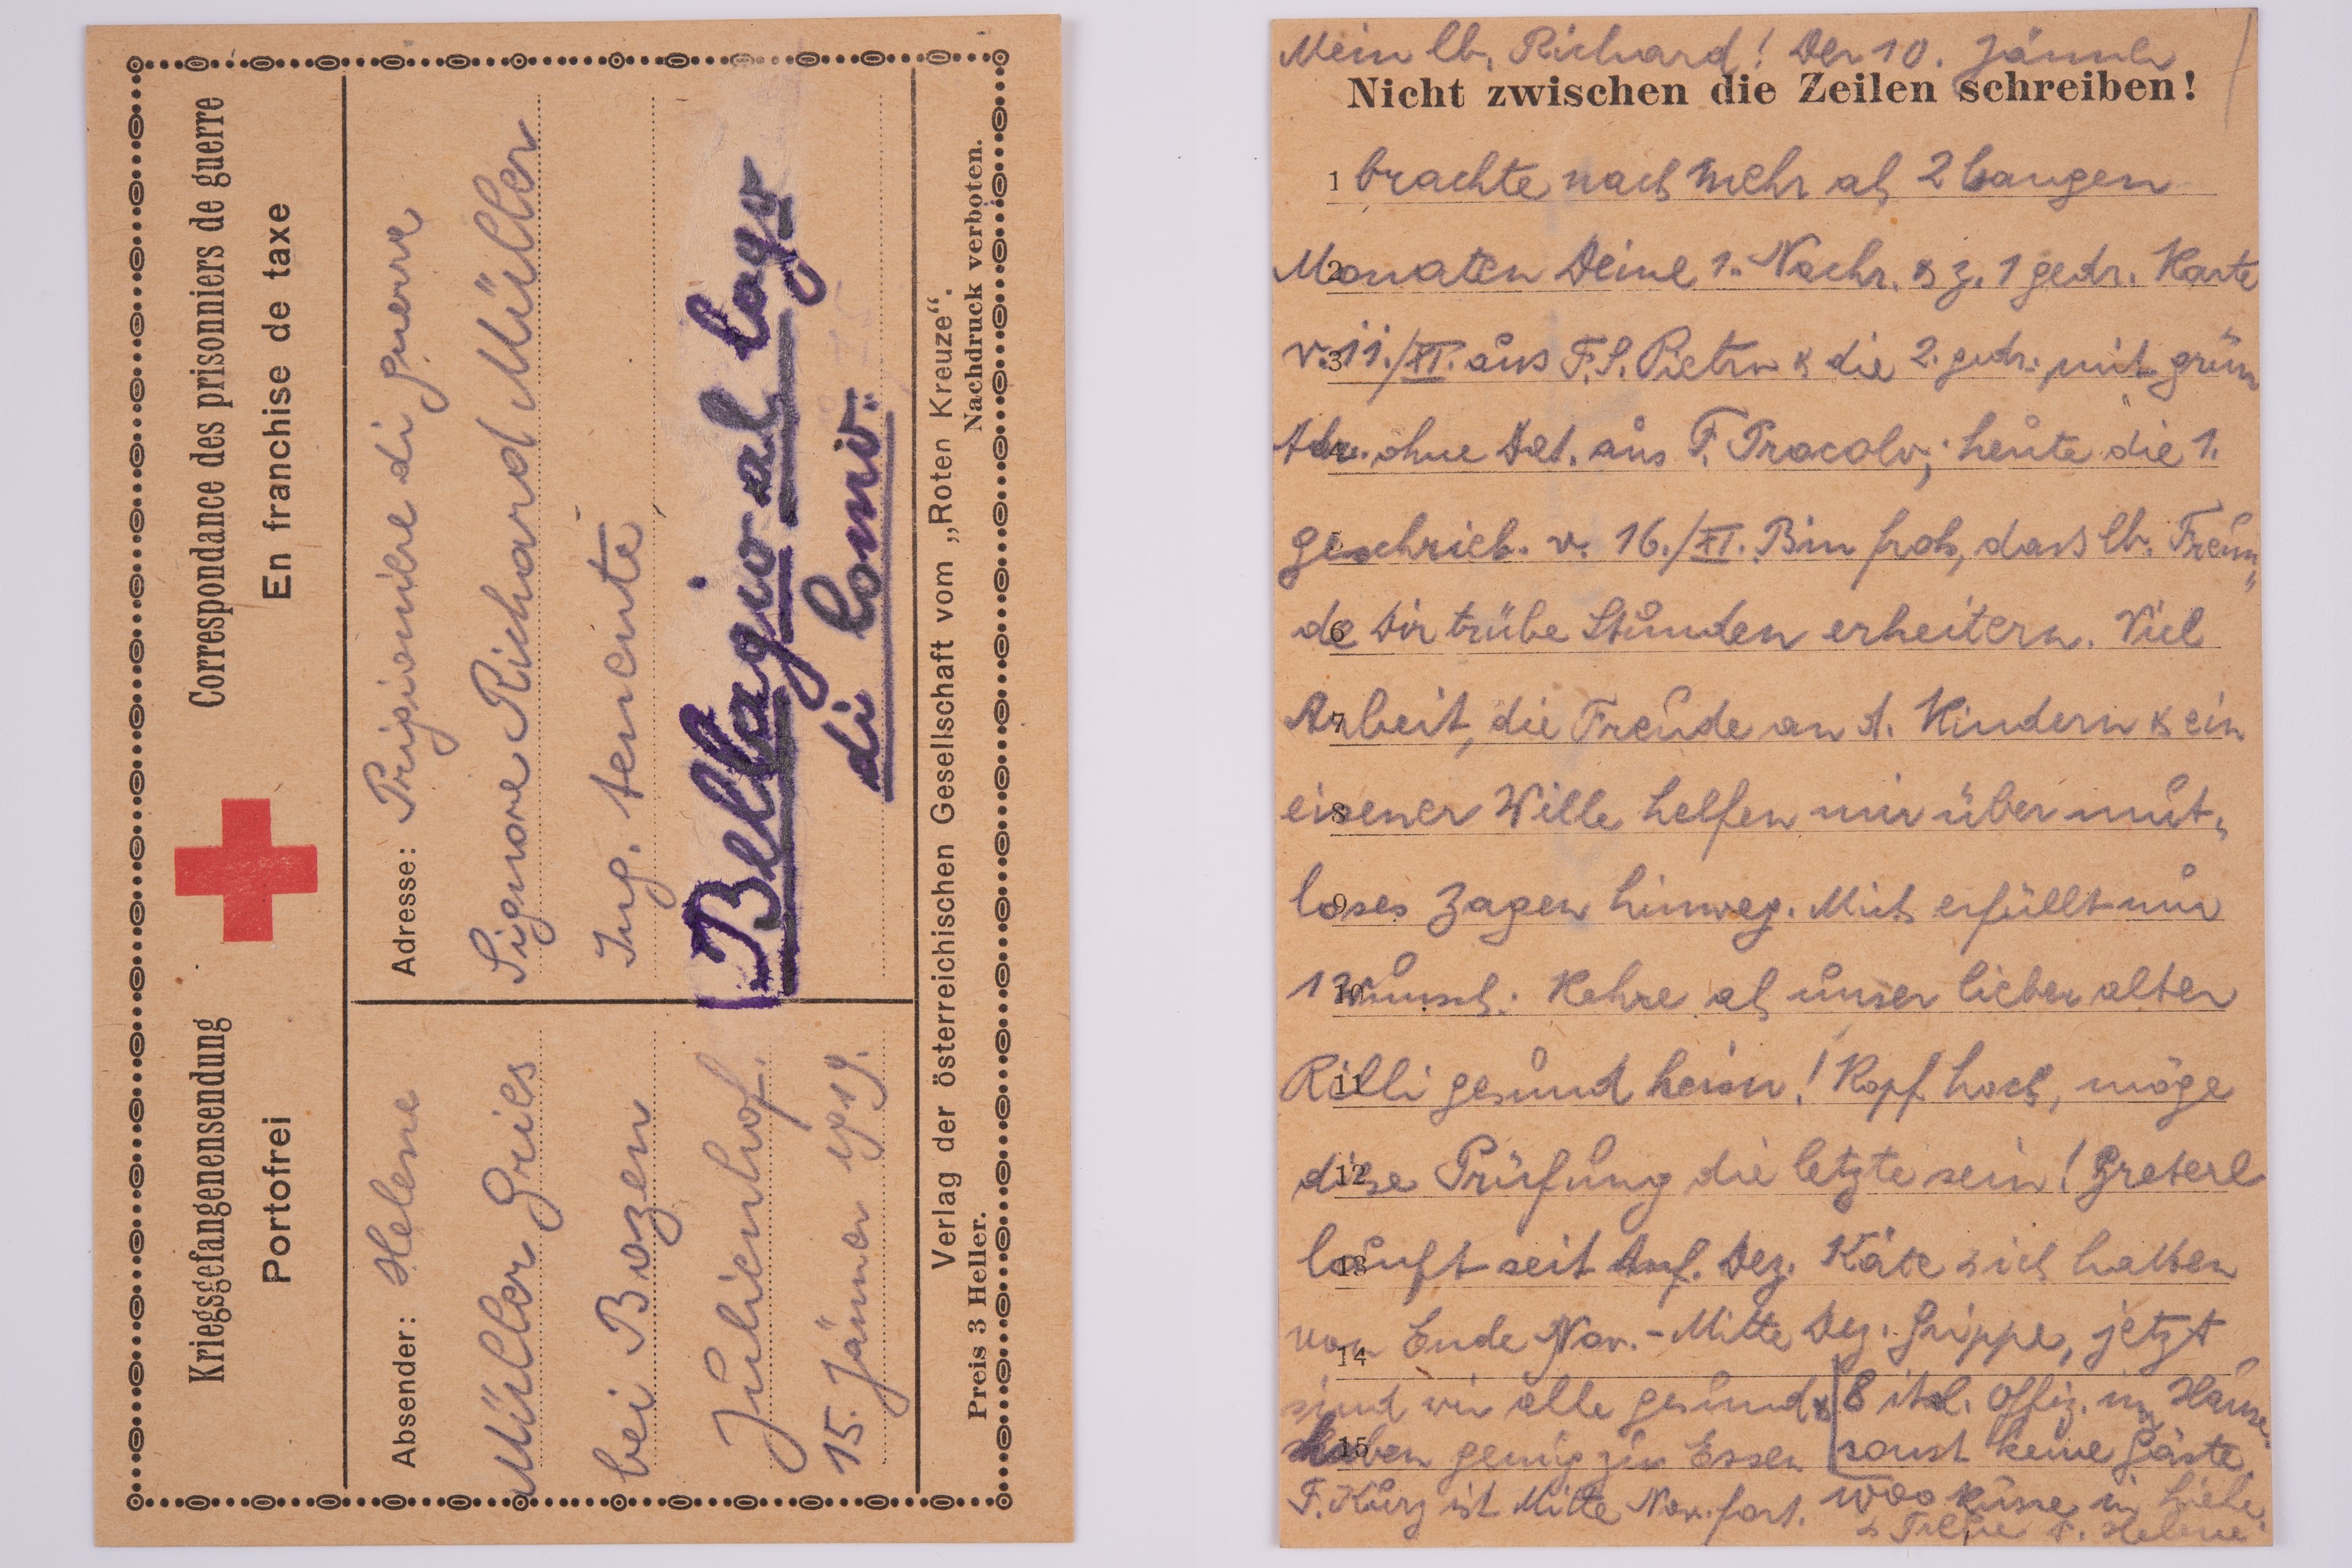 Kriegsgefangenensendung
Correspondance des prisonniers de guerre
Portofrei
En franchise de taxe
Absender: Helene
Müller Gries
bei Bozen
Julienhof.
15. Jänner 1919.
Adresse: Prigioniere di guerra
Signore Richard Müller
Ing. tenente
Bellagio al lago
di Como.
Verlag der österreichischen Gesellschaft vom „Roten Kreuze“.
Preis 3 Heller.
Nachdruck verboten.
Mein lb. Richard! Der 10. Jänner
Nicht zwischen die Zeilen schreiben!
1 brachte nach mehr als 2 bangen
2 Monaten Deine 1. Nachr. & z. 1 gedr. Karte
3 v. 11./XI. aus F. S. Pietro & die 2. gedr. mit grün
Adr. ohne Dat. aus F. Procolo; heute die 1.
geschrieb. v. 16./XI. Bin froh, dass lb. Freun-
6 de Dir trübe Stunden erheitern. Viel
7 Arbeit, die Freude an d. Kindern & ein
8 eisener Wille helfen mir über mut-
9 loses Zagen hinweg. Mich erfüllt nur
10 1 Wunsch: Kehre als unser lieber alter
11 Rilli gesund heim! Kopf hoch, möge
12 diese Prüfung die letzte sein! Greterl
13 läuft seit Anf. Dez. Käte & ich hatten
14 von Ende Nov. - Mitte Dez. Grippe, jetzt
sind wir alle gesund & 8 ital. Offiz. im Hause
15 haben genug zu Essen sonst keine Gäste.
F. Kurz ist Mitte Nov. fort. 1000 Küsse in Liebe
& Treue D. Helene